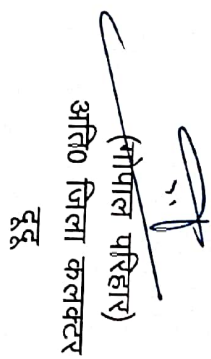 (गोपाल परिहार)
अति० जिला कलक्टर
दूदू